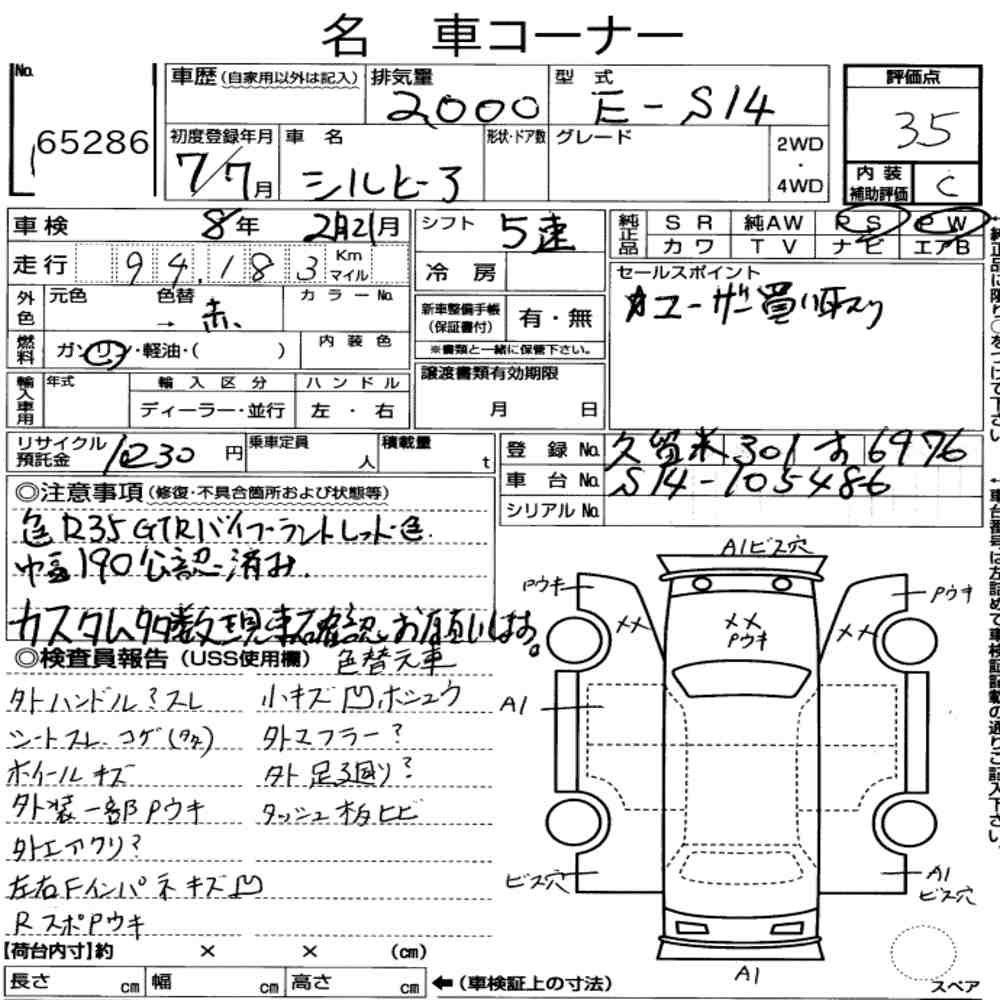 名 車コーナー
No.
65286
車歴(自家用以外は記入)
排気量
2000
型 式
E-S14
評価点
3.5
初度登録年月
7/7月
車 名
シルビア
形状・ドア数
グレード
2WD
・
4WD
内 装
補助評価
C
車検
8年 2月21月
シフト
5速
純正品
SR 純AW PS PW
カワ TV ナビ エアB
走行
94,183
Km
マイル
冷 房
セールスポイント
ユーザー買い取り
外色
元色
色替
→ 赤
カラーNo.
新車整備手帳
(保証書付)
有・無
※書類と一緒に保管下さい。
燃料
ガソリン・軽油・( )
内 装 色
輸入車用
年式
輸 入 区 分
ハ ン ド ル
ディーラー・並行
左 ・ 右
譲渡書類有効期限
月 日
リサイクル
預託金
10230円
乗車定員
人
積載量
t
登 録 No.
久留米 301 す 6976
車 台 No.
S14-105486
シリアル No.
◎注意事項(修復・不具合箇所および状態等)
色R35GTRバイブラントレッド色.
巾幅190公認済み.
カスタム多数現車確認お願いします。
◎検査員報告(USS使用欄)
色替元車
外ハンドル?スレ
小キズ凹ホシュウ
シートスレ.コゲ(タタ)
外マフラー?
ホイールキズ
外足回り?
外装一部Pウキ
ダッシュ板ヒビ
外エアクリ?
左右Fインパネキズ凹
RスポPウキ
【荷台内寸】約 × × (cm)
長さ cm 幅 cm 高さ cm ←(車検証上の寸法)
A1ビス穴
Pウキ
Pウキ
××
××
Pウキ
××
A1
ビス穴
A1
ビス穴
A1
スペア
純正品に限り○をつけて下さい
←車台番号は左詰めで車検証記載の通りご記入下さい。